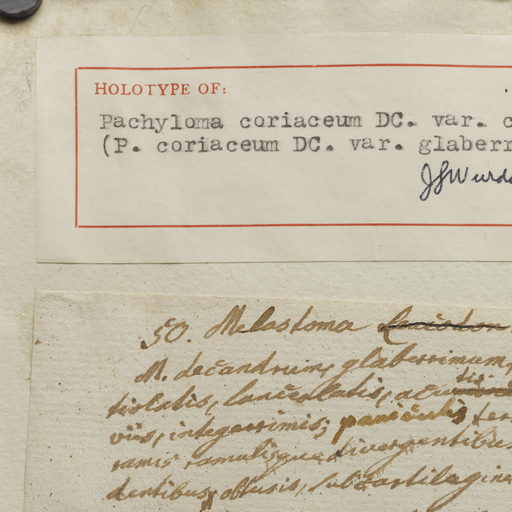 HOLOTYPE OF:
Pachyloma coriaceum DC. var. c
(P. coriaceum DC. var. glaberr
JJWurda
50. Melastoma
M. decandrum, glaberrimum,
tiolatis, lanceolatis, acu tis
viis, integerrimis; paniculis ter
ramis ramulisque divergentibus
dentibus obtusis, subcartilagine